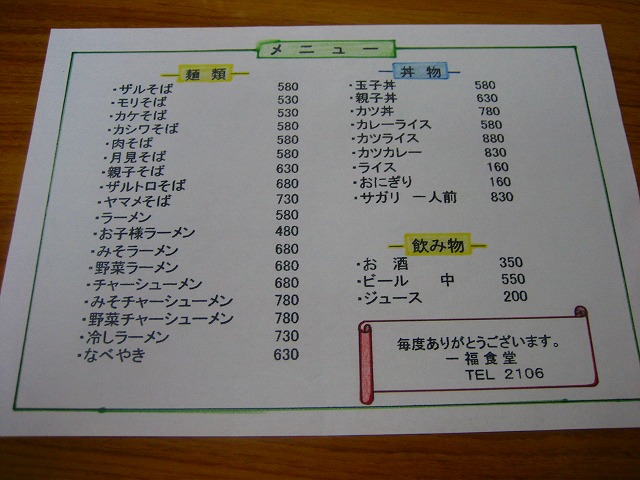 メニュー
麺類
・ザルそば 580
・モリそば 530
・カケそば 530
・カシワそば 580
・肉そば 580
・月見そば 580
・親子そば 630
・ザルトロそば 680
・ヤマメそば 730
・ラーメン 580
・お子様ラーメン 480
・みそラーメン 680
・野菜ラーメン 680
・チャーシューメン 680
・みそチャーシューメン 780
・野菜チャーシューメン 780
・冷しラーメン 730
・なべやき 630
丼物
・玉子丼 580
・親子丼 630
・カツ丼 780
・カレーライス 580
・カツライス 880
・カツカレー 830
・ライス 160
・おにぎり 160
・サガリ 一人前 830
飲み物
・お 酒 350
・ビール 中 550
・ジュース 200
毎度ありがとうございます。
一福食堂
TEL 2106